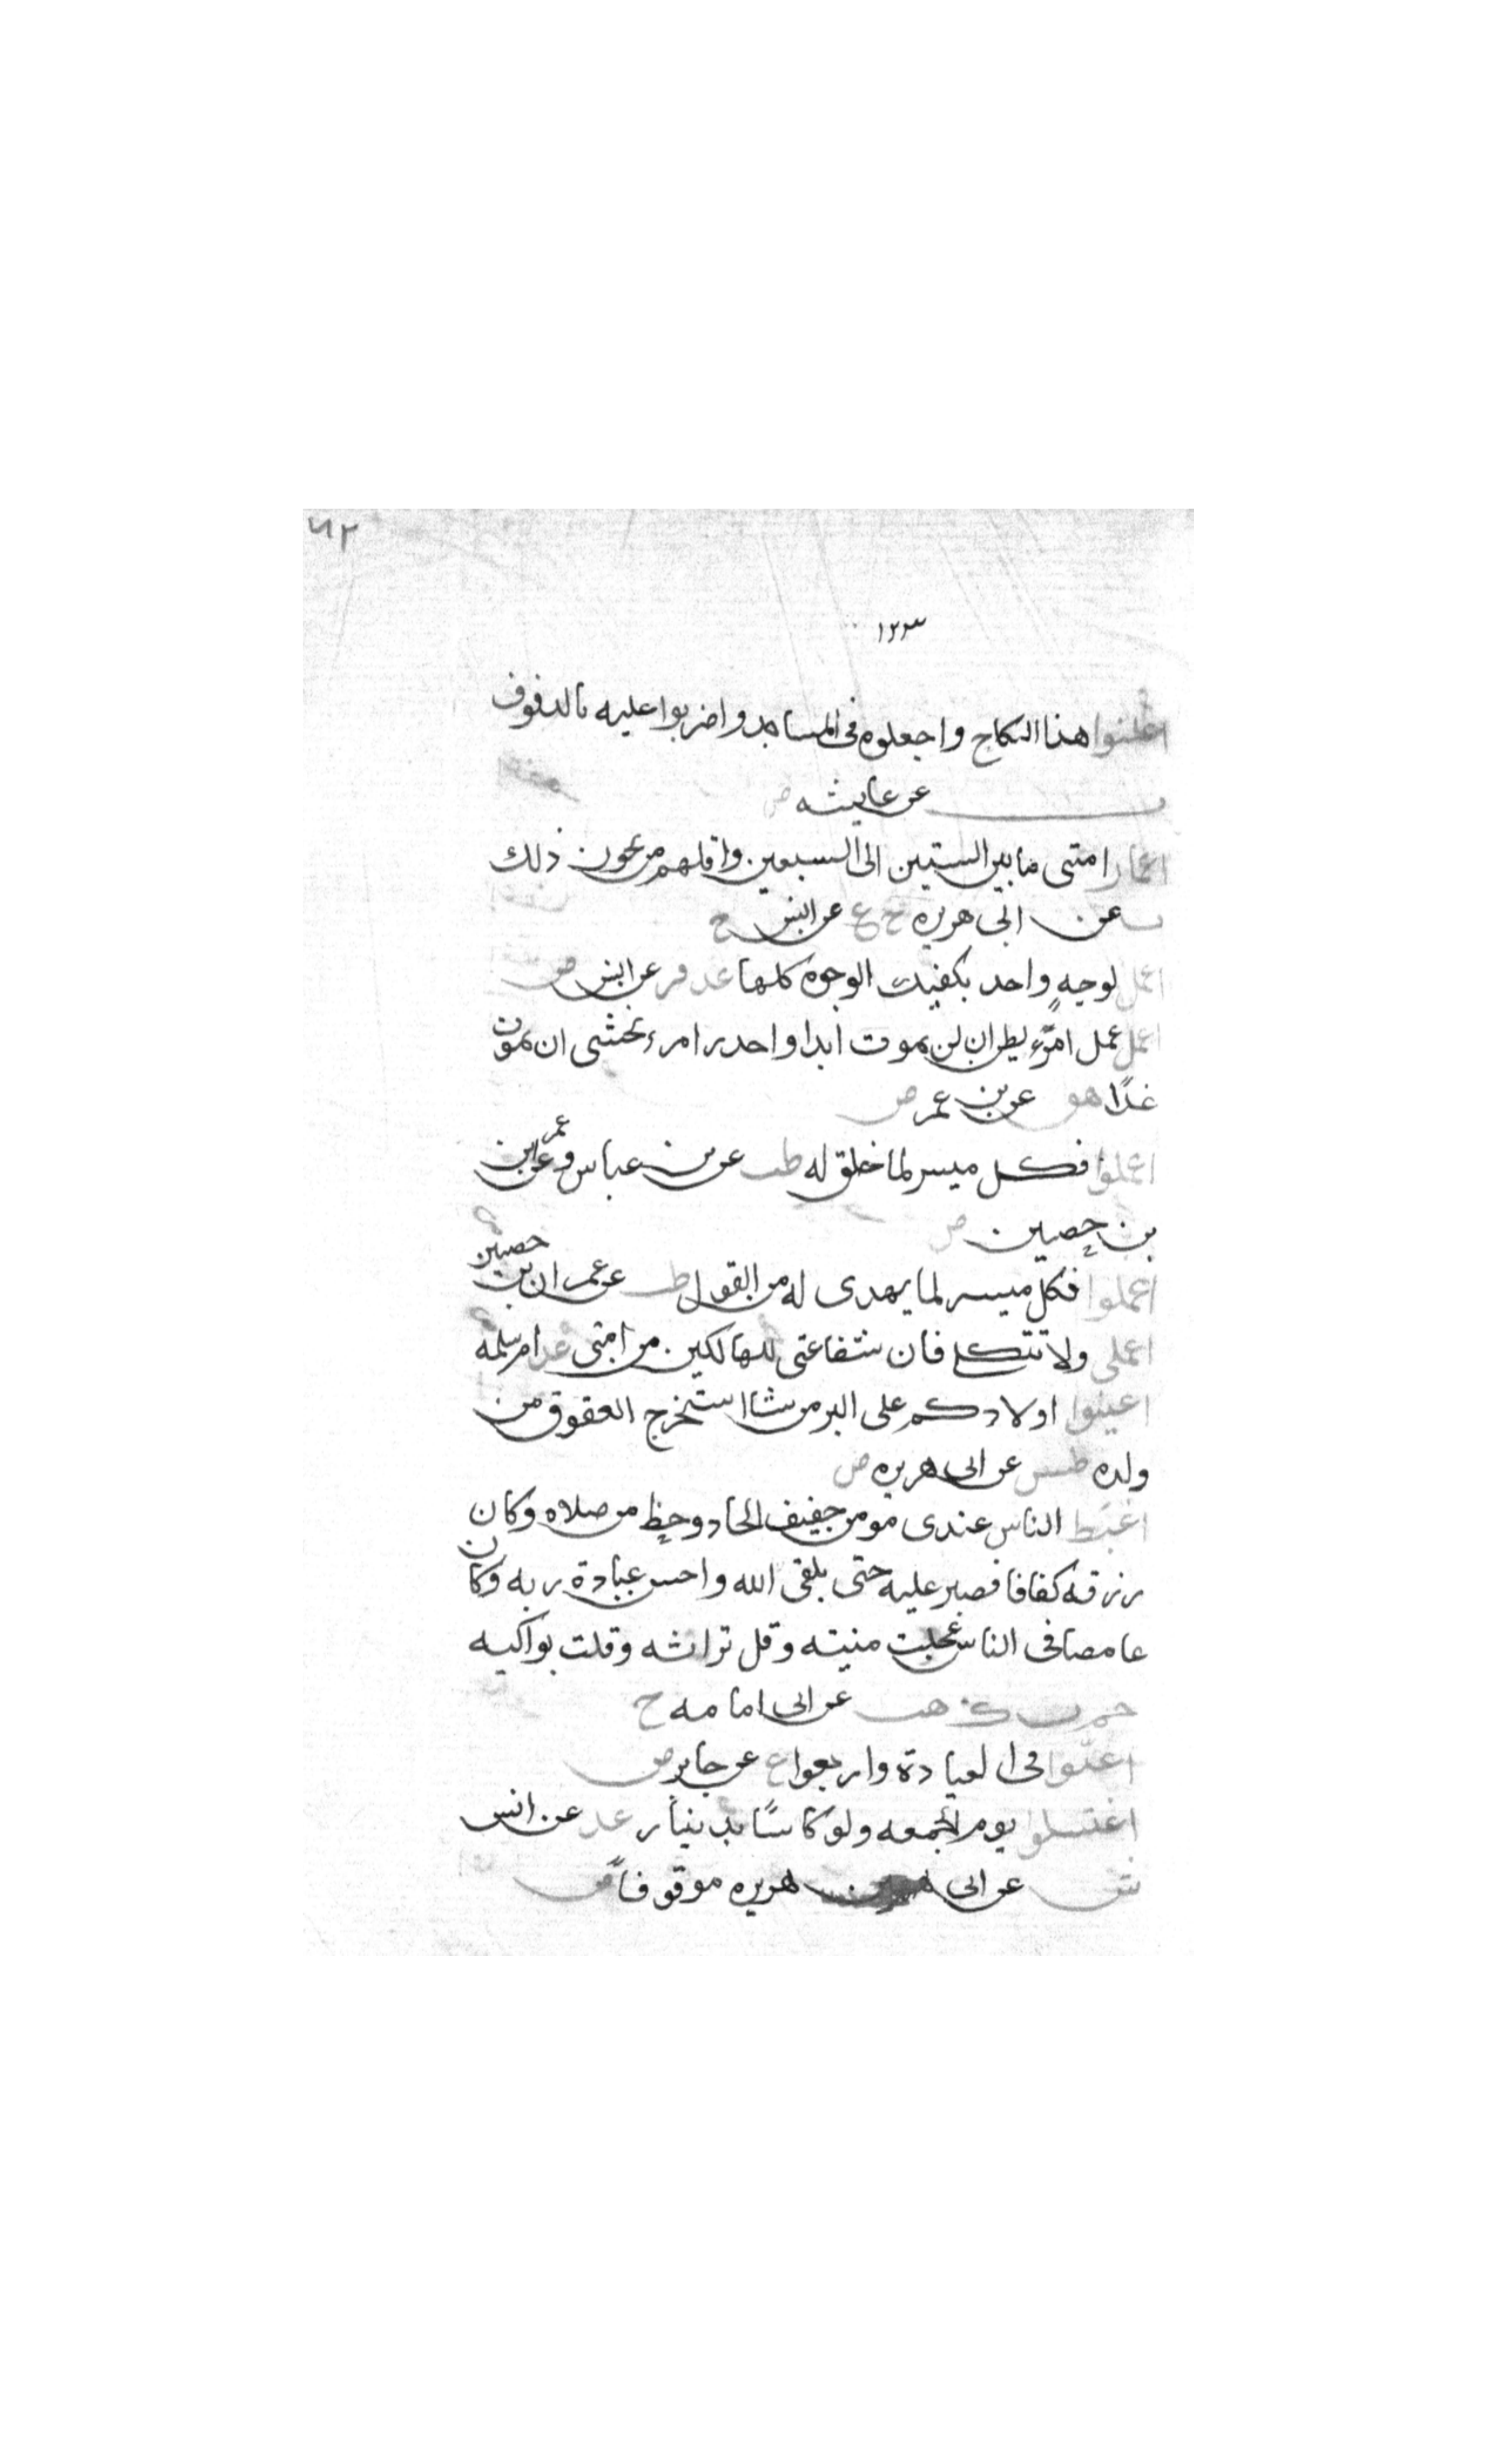 ٦٢
١٢٣
اعلنوا هذا النكاح واجعلوه فى المساجد واضربوا عليه بالدفوف
ت عن عايشه ض
اعمار امتى ما بين الستين الى السبعين واقلهم من يجوز ذلك
ت عن ابى هريره ح ع عن انس ح
اعمل لوجهٍ واحد يكفيك الوجوه كلها عد فر عن انس ض
اعمل عمل امرءٍ يظن ان لن يموت ابدا واحذر امرء يخشى ان يموت
غدًا هق عن بن عمر ض
اعملوا فكل ميسر لما خلق له طب عن بن عباس وعن عمر ابن
بن حصين ض
اعملوا فكل ميسر لما يهدى له من القول طب عن عمران بن حصين
اعملى ولا تتكلى فان شفاعتى للهالكين من امتى عد ام سلمه
اعينوا اولادكم على البر من شا استخرج العقوق من
ولده طس عن ابى هريره ض
اغبط الناس عندى مومن خفيف الحاذ وحظ من صلاه وكان
رزقه كفافا فصبر عليه حتى يلقى الله واحسن عبادة ربه وكان
غامضا فى الناس عجلت منيته وقل تراثه وقلت بواكيه
حم ت ك هب عن ابى امامه ح
اغبّوا فى العيادة واربعوا ع عن جابر ض
اغتسلوا يوم الجمعه ولو كاسًا بدينار عد عن انس
ش عن ابى هريره موقوفاً ض